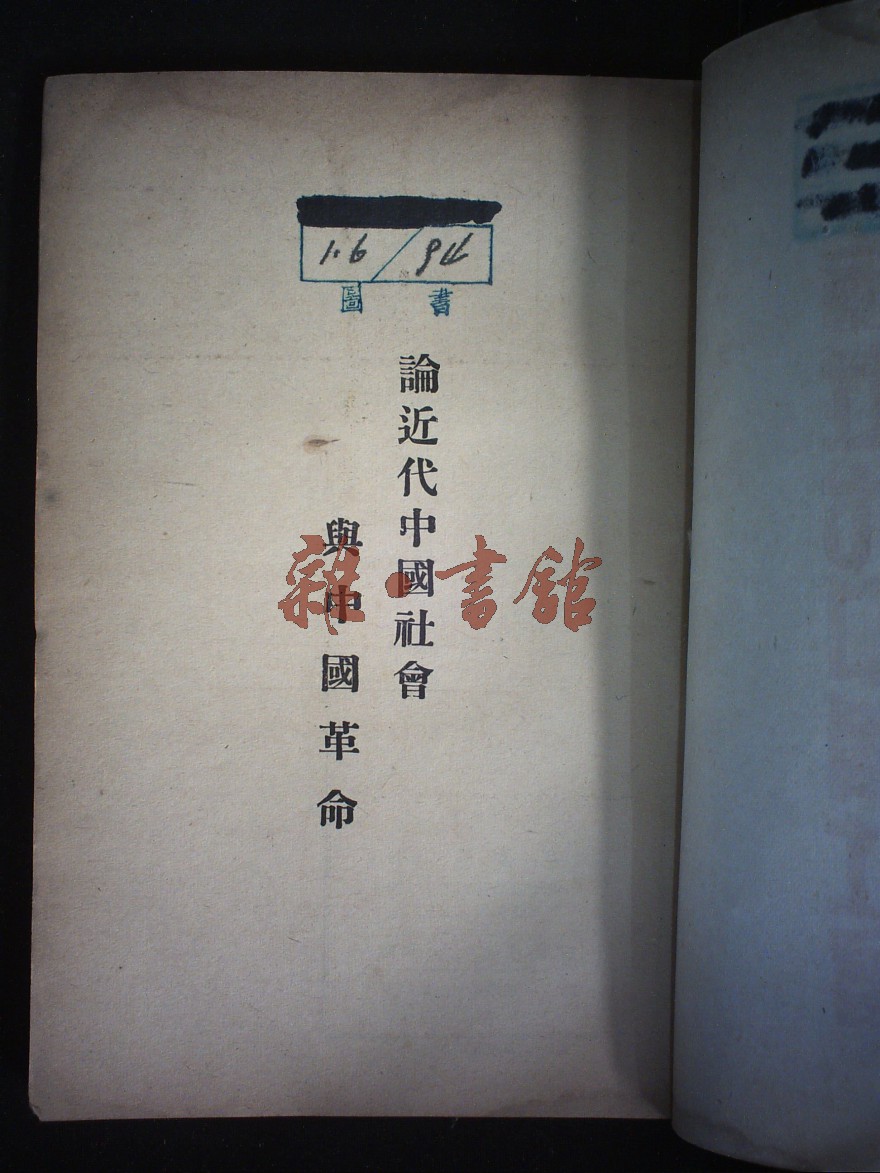 1.6/94
圖書
論近代中國社會
與中國革命
雜·書館